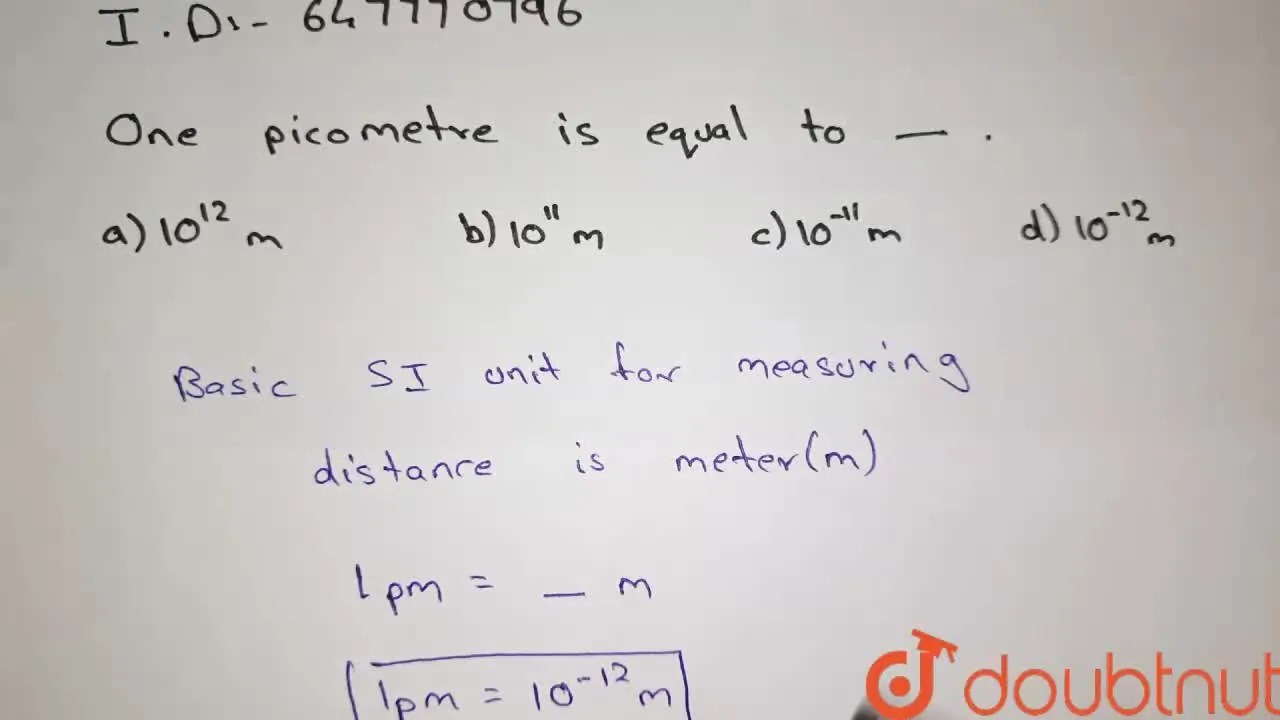 I.D:-
One picometre is equal to — .
a) 10¹² m b) 10¹¹ m c) 10⁻¹¹ m d) 10⁻¹² m
Basic SI unit for measuring
distance is meter(m)
1 pm = — m
1pm = 10⁻¹² m
doubtnut